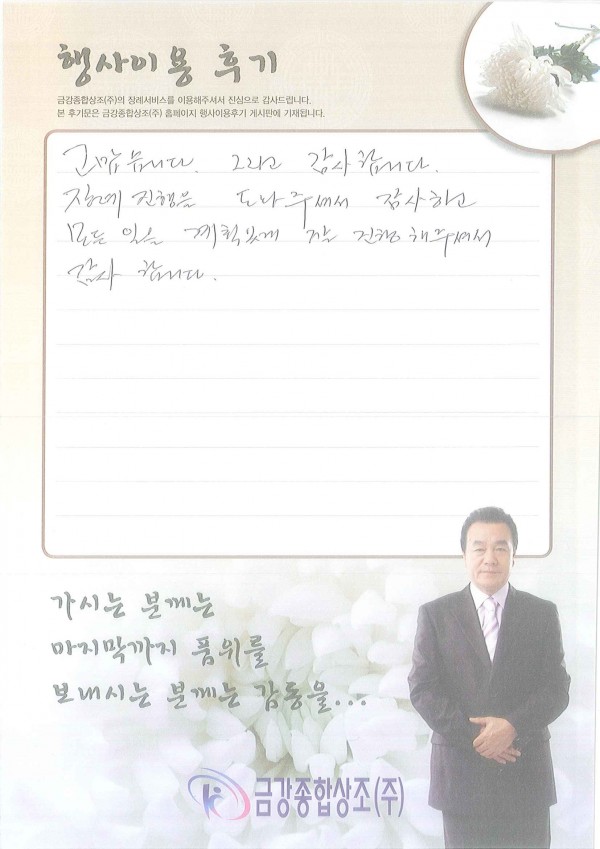 행사이용 후기
금강종합상조(주)의 장례서비스를 이용해주셔서 진심으로 감사드립니다.
본 후기문은 금강종합상조(주) 홈페이지 행사이용후기 게시판에 기재됩니다.
고맙습니다. 그리고 감사합니다.
장례 진행을 도와주셔서 감사하고
모든 일을 계획있게 잘 진행해주셔서
감사 합니다.
가시는 분께는
마지막까지 품위를
보내시는 분께는 감동을...
금강종합상조(주)